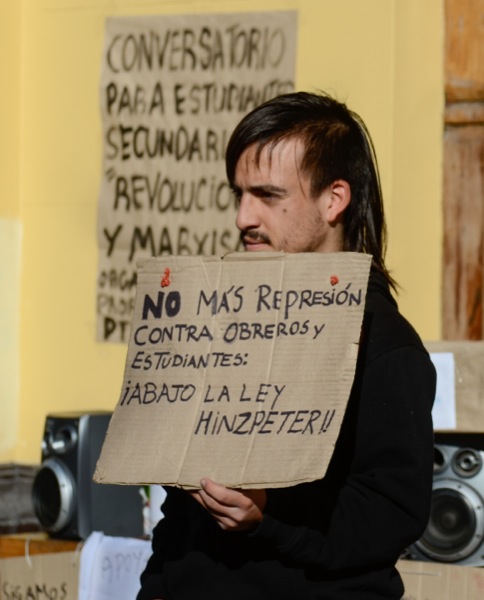 CONVERSATORIO
PARA ESTUDIANTES
SECUNDARI
"REVOLUCIO
Y MARXIS
NO MÁS REPRESIÓN
CONTRA OBREROS Y
ESTUDIANTES:
¡ABAJO LA LEY
HINZPETER!!
SIGAMOS
APOY